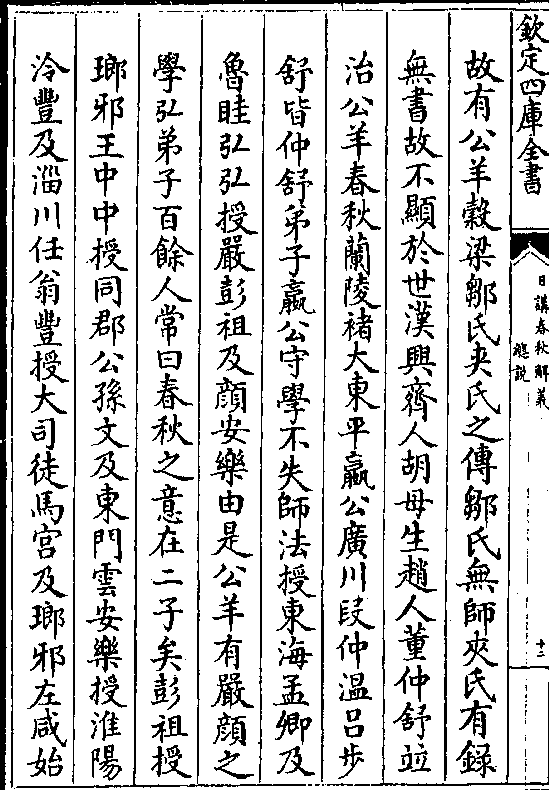 欽定四庫全書
日講春秋解義
總説
十二
故有公羊穀梁鄒氏夾氏之傳鄒氏無師夾氏有録
無書故不顯於世漢興齊人胡母生趙人董仲舒竝
治公羊春秋蘭陵褚大東平嬴公廣川段仲温吕步
舒皆仲舒弟子嬴公守學不失師法授東海孟卿及
魯眭弘弘授嚴彭祖及顔安樂由是公羊有嚴顔之
學弘弟子百餘人常曰春秋之意在二子矣彭祖授
瑯邪王中中授同郡公孫文及東門雲安樂授淮陽
泠豐及淄川任翁豐授大司徒馬宫及瑯邪左咸始